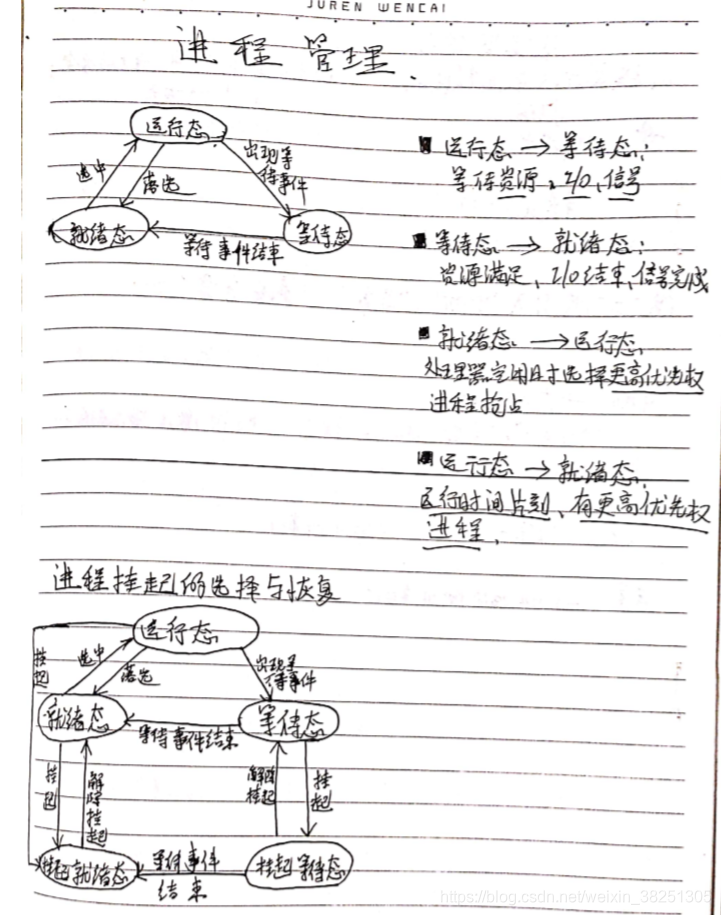 JUREN WENCAI
进程管理.
运行态
选中
落选
出现等
待事件
就绪态
等待态
等待事件结束
运行态 → 等待态:
等待资源、I/O、信号
等待态 → 就绪态:
资源满足、I/O结束、信号完成
就绪态 → 运行态
处理器空闲时选择更高优先权
进程抢占
运行态 → 就绪态
运行时间片到、有更高优先权
进程.
进程挂起的选择与恢复
运行态
挂起
选中
落选
出现等
待事件
就绪态
等待态
等待事件结束
挂起
解除挂起
解除
挂起
挂起
挂起就绪态
等待事件
结束
挂起等待态
https://blog.csdn.net/weixin_38251305